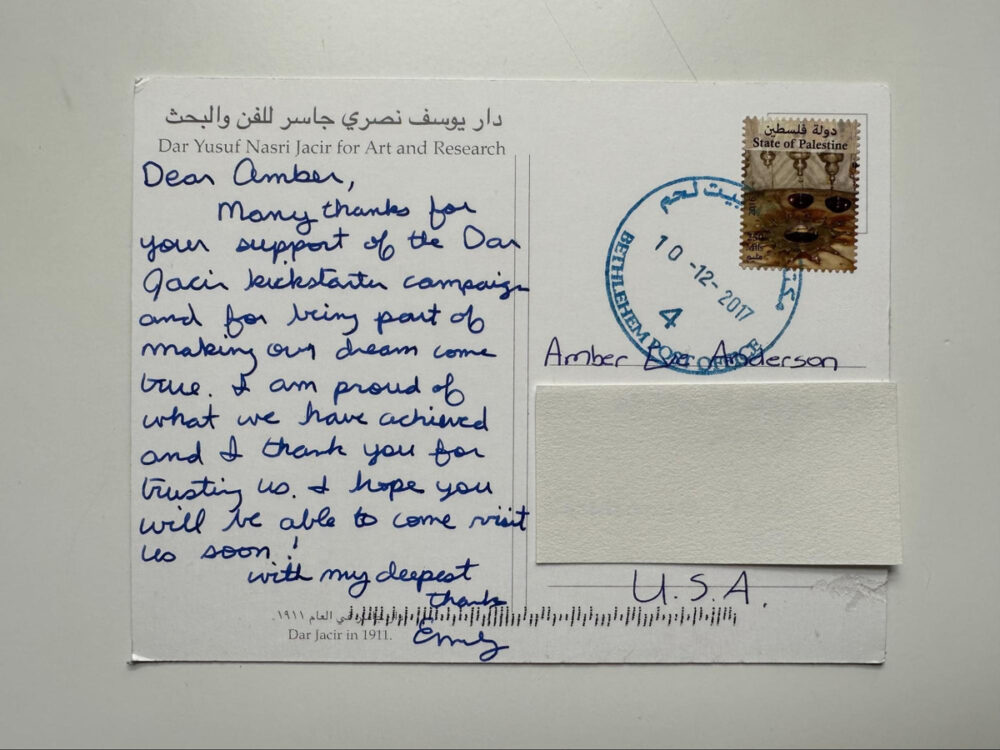 دار يوسف نصري جاسر للفن والبحث
Dar Yusuf Nasri Jacir for Art and Research
Dear Amber,
Many thanks for
your support of the Dar
Jacir kickstarter campaign
and for being part of
making our dream come
true. I am proud of
what we have achieved
and I thank you for
trusting us. I hope you
will be able to come visit
us soon!
with my deepest
thanks
Emily
في العام ١٩١١.
Dar Jacir in 1911.
دولة فلسطين
State of Palestine
بيت لحم
10-12-2017
4
BETHLEHEM POST OFFICE
Amber Eve Anderson
U.S.A.